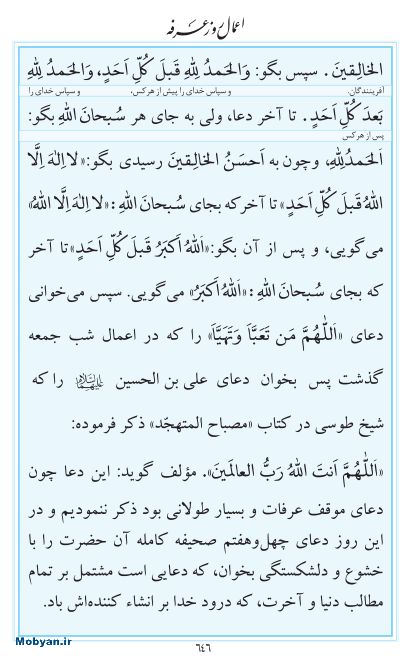 اعمال روز عرفه
الخالِقینَ. سپس بگو: وَالحَمدُ لِلهِ قَبلَ کُلِّ اَحَدٍ، وَالحَمدُ لِلهِ
آفرینندگان. و سپاس خدای را پیش از هرکس، و سپاس خدای را
بَعدَ کُلِّ اَحَدٍ. تا آخر دعا، ولی به جای هر سُبحانَ اللهِ بگو:
پس از هرکس
اَلحَمدُلِلهِ، وچون به اَحسَنُ الخالِقینَ رسیدی بگو:«لا اِلٰهَ اِلَّا
اللهُ قَبلَ کُلِّ اَحَدٍ» تا آخرکه بجای سُبحانَ اللهِ:«لا اِلٰهَ اِلَّا اللهُ»
می‌گویی، و پس از آن بگو:«اَللهُ اَکبَرُ قَبلَ کُلِّ اَحَدٍ»تا آخر
که بجای سُبحانَ اللهِ: «اَللهُ اَکبَرُ» می‌گویی. سپس می‌خوانی
دعای «اَللّٰهُمَّ مَن تَعَبَّاَ وَتَهَیَّاَ» را که در اعمال شب جمعه
گذشت پس بخوان دعای علی بن الحسین علیهماالسلام را که
شیخ طوسی در کتاب «مصباح المتهجّد» ذکر فرموده:
«اَللّٰهُمَّ اَنتَ اللهُ رَبُّ العالَمینَ». مؤلف گوید: این دعا چون
دعای موقف عرفات و بسیار طولانی بود ذکر ننمودیم و در
این روز دعای چهل‌وهفتم صحیفه کامله آن حضرت را با
خشوع و دلشکستگی بخوان، که دعایی است مشتمل بر تمام
مطالب دنیا و آخرت، که درود خدا بر انشاء کننده‌اش باد.
Mobyan.ir
٦٤٦